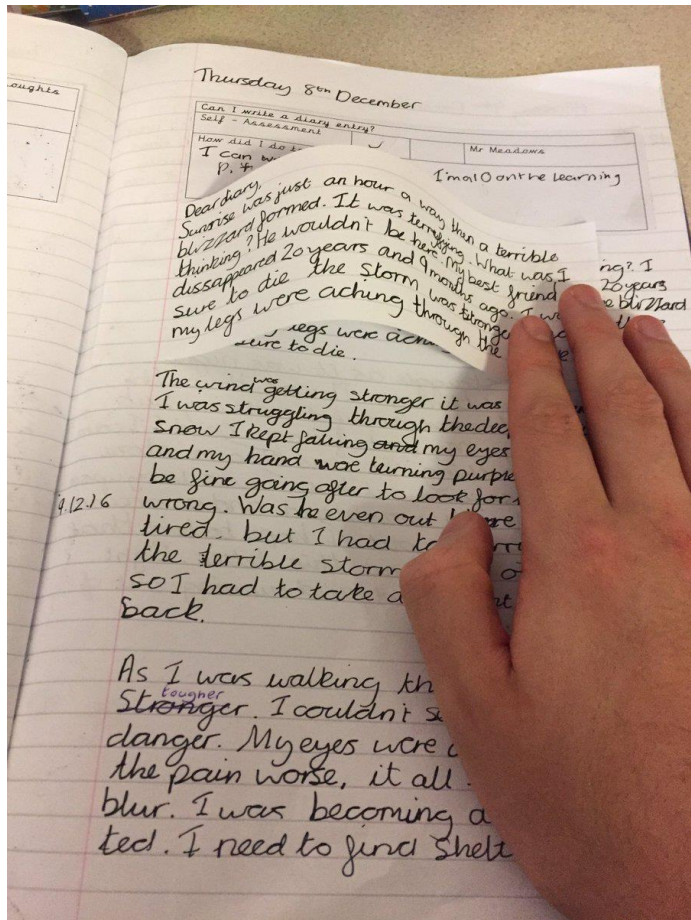 oughts
Thursday 8th December
Can I write a diary entry?
Self - Assessment
How did I do
Mr Meadows
I can
I'm a 10 on the learning
Dear diary,
Sunrise was just an hour a way then a terrible
blizzard formed. It was terrifying. What was I
thinking? He wouldn't be here, my best friend
dissappeared 20 years and 9 months ago. I
sure to die the storm was stronger
my legs were aching through the
ing? I
20 years
blizzard
legs were
sure to die.
The wind was getting stronger it was
I was struggling through the dee
snow I kept falling and my eyes
and my hand were turning purple
be fine going after to look for
9.12.16
wrong. Was he even out
tired. but I had to
the terrible storm
so I had to take a
back.
As I was walking th
Stronger. tougher I couldn't s
danger. My eyes were
the pain worse, it all
blur. I was becoming
ted. I need to find Shelt